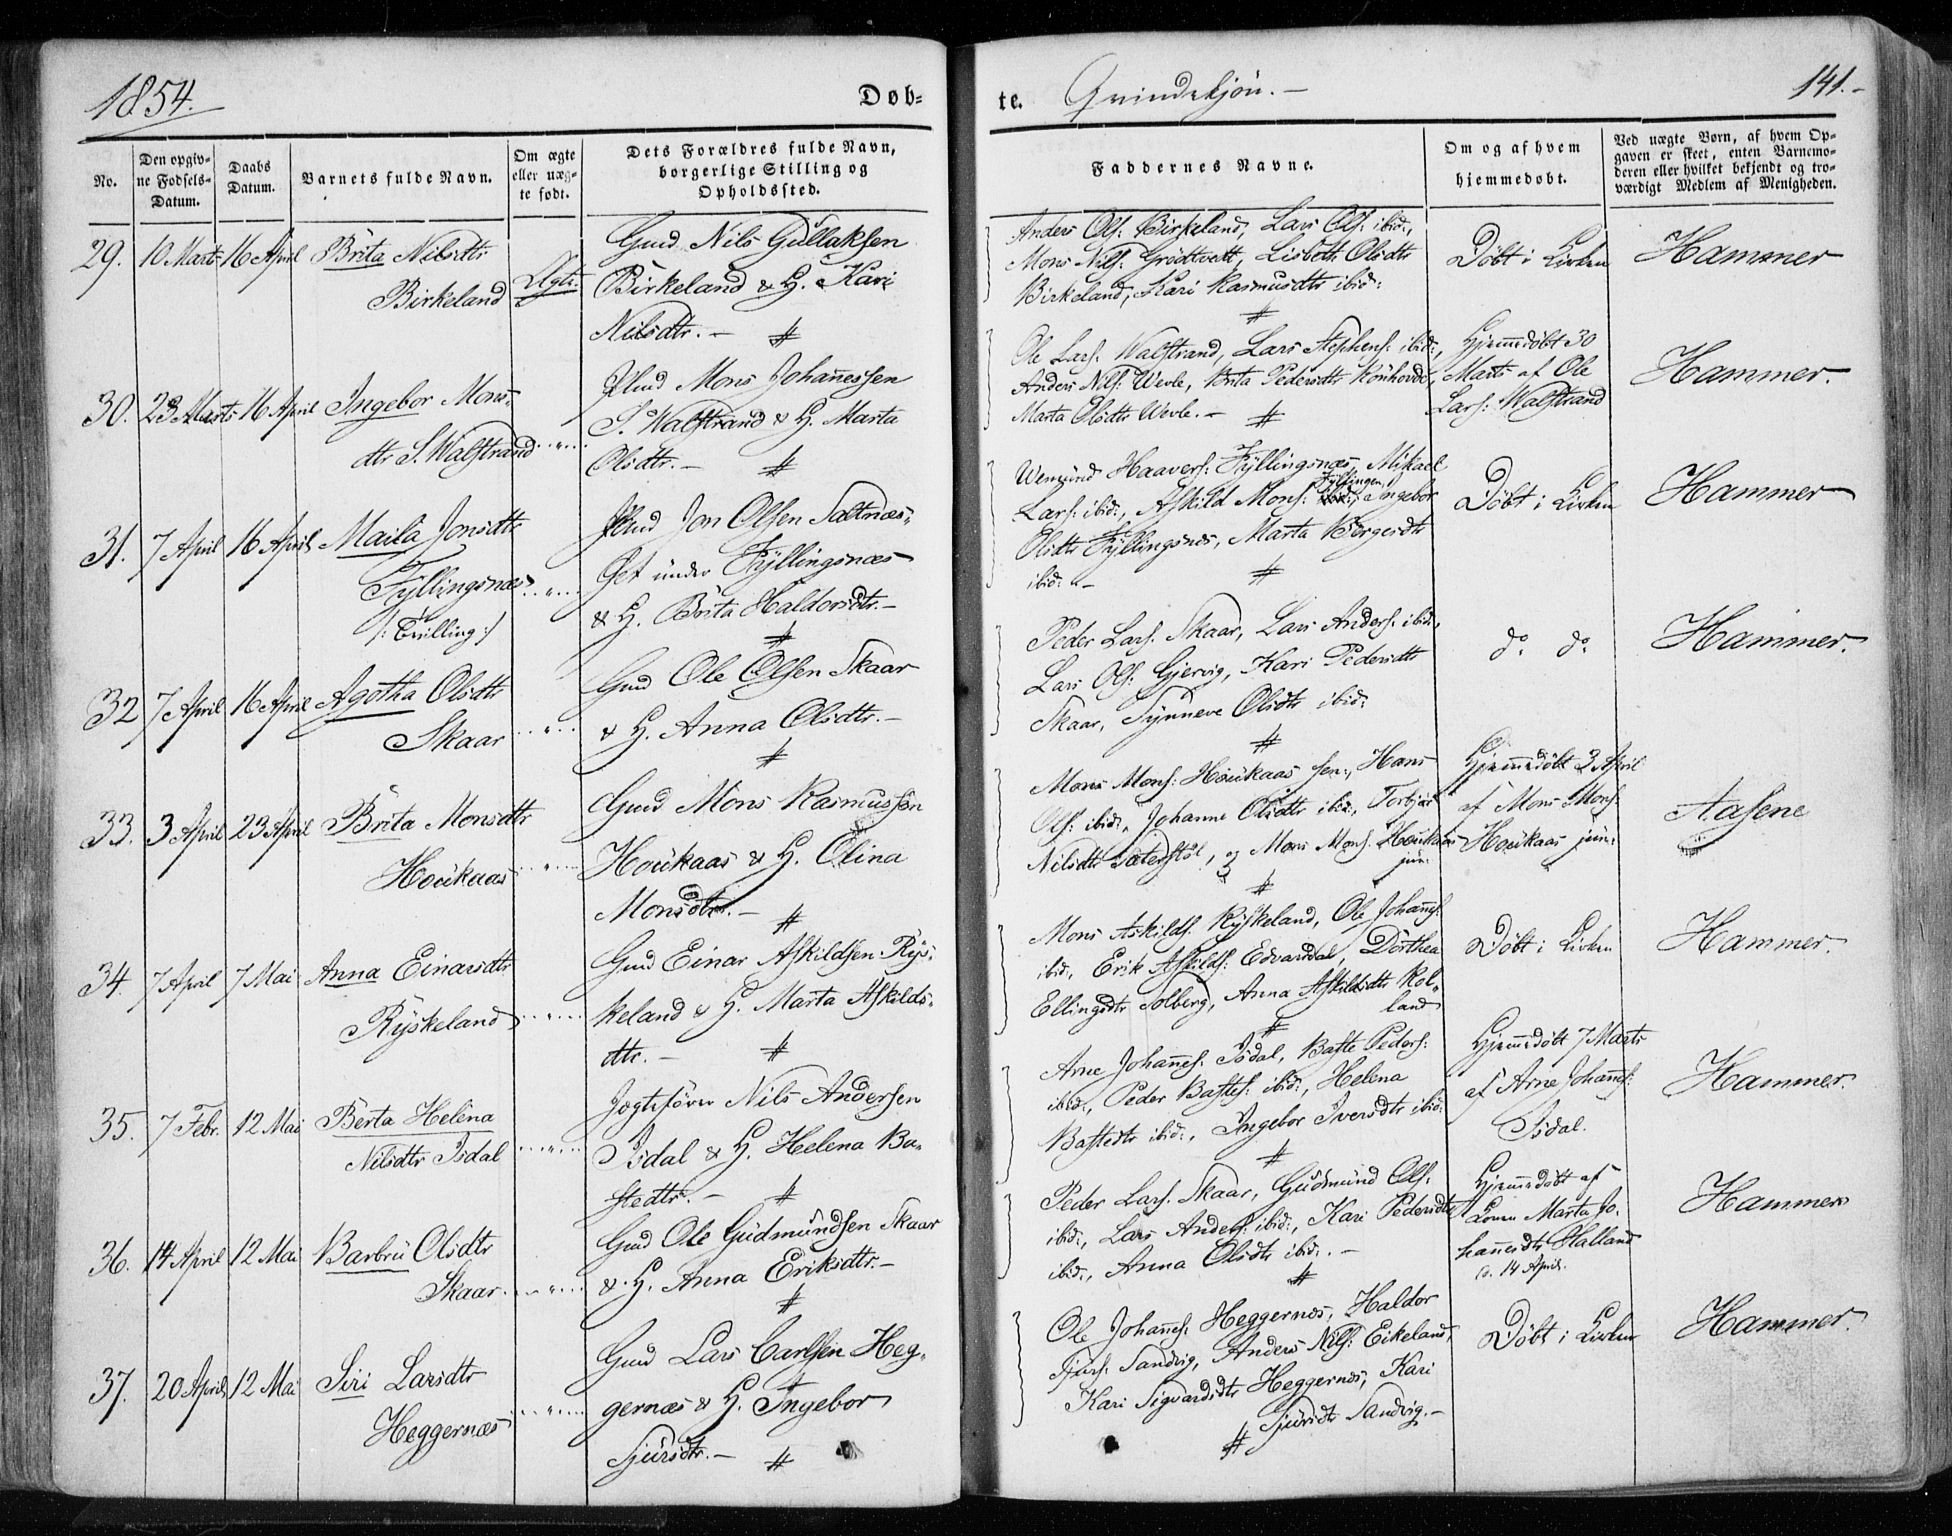 1854.
Døb=
te. Qvindekjøn. —
141. -
No.
Den opgiv=
ne Fødsels=
Datum.
Daabs
Datum.
Barnets fulde Navn.
Om ægte
eller uæg=
te født.
Dets Forældres fulde Navn,
borgerlige Stilling og
Opholdssted.
Faddernes Navne.
Om og af hvem
hjemmedøbt.
Ved uægte Børn, af hvem Op=
gaven er skeet, enten Barnemo=
deren eller hvilket bekjendt og tro=
værdigt Medlem af Menigheden.
29. 10 Marts 16 April Brita Nilsdtr
Birkeland Ægte.
Gmd Nils Gullaksen
Birkeland & H. Kari
Nilsdtr. — #
Anders Ols: Birkeland, Lars Ols: ibid:,
Mons Nils: Grödtvedt, Lisbeth Olsdtr
Birkeland, Kari Rasmusdtr ibid: #
Döbt i Kirken
Hammer
30. 23 Marts 16 April Ingebor Mons=
dtr S. Walstrand "
Hmd Mons Johanessen
S. Walstrand & H. Marta
Olsdtr. — #
Ole Lars: Walstrand, Lars Stephens: ibid:,
Anders Nils: Wevle, Brita Pedersdtr Rönhovde,
Marta Olsdtr Wevle. — #
Hjemmedöbt 30
Marts af Ole
Lars: Walstrand
Hammer.
31. 7 April 16 April Maila Jonsdtr
Fyllingsnæs "
/: Trilling :/
Hmd Jon Olsen Saltnæs=
get under Fyllingsnæs
& H. Brita Haldorsdtr. — #
Wemund Haavers: Fyllingsnæs, Mikael
Lars: ibid:, Askild Mons: Fyllingen, Ingebor
Olsdtr Fyllingsnæs, Marta Börgesdtr
ibid: — #
Döbt i Kirken
Hammer
32 7 April 16 April Agotha Olsdtr
Skaar "
Gmd Ole Olsen Skaar
& H. Anna Olsdtr. — #
Peder Lars: Skaar, Lars Anders: ibid:,
Lars Ols: Gjervig, Kari Pedersdtr
Skaar, Synneve Olsdtr ibid: #
do do
Hammer.
33. 3 April 23 April Brita Monsdtr
Houkaas "
Gmd Mons Rasmussen
Houkaas & H. Olina
Monsdtr. — #
Mons Mons: Houkaas sen:, Hans
Ols: ibid:, Johanne Olsdtr ibid:, Torbjör
Nilsdtr Sæterstöl, og Mons Mons: Houkaas
jun: #
Hjemmedöbt 3 April
af Mons Mons:
Houkaas jun:
Aasene
34. 7 April 7 Mai Anna Einarsdtr
Ryskeland "
Gmd Einar Askildsen Rys=
keland & H. Marta Askilds=
dtr. — #
Mons Askilds: Ryskeland, Ole Johans:
ibid:, Erik Askilds: Edvardal, Dorthea
Ellingsdtr Solberg, Anna Askildsdtr Kol=
land #
Döbt i Kirken
Hammer.
35. 7 Febr. 12 Mai Berta Helena
Nilsdtr Isdal "
Jagtefører Nils Andersen
Isdal & H. Helena Ba=
stedtr. — #
Arne Johanes: Isdal, Baste Peders:
ibid:, Peder Bastes: ibid:, Helena
Bastedtr ibid:, Ingebor Iversdtr ibid: #
Hjemmedöbt 7 Marts
af Arne Johanes:
Isdal.
Hammer.
36. 14 April 12 Mai Barbru Olsdtr
Skaar "
Gmd Ole Gudmundsen Skaar
& H. Anna Eriksdtr. — #
Peder Lars: Skaar, Gudmund Ols:
ibid:, Lars Anders: ibid:, Kari Pedersdtr
ibid:, Anna Olsdtr ibid:. — #
Hjemmedöbt af
Konen Marta Jo=
hannesdtr Halland
d. 14 April.
Hammer
37. 20 April 12 Mai Siri Larsdtr
Heggernæs "
Gmd Lars Carlsen Heg=
gernæs & H. Ingebor
Sjursdtr. — #
Ole Johanes: Heggernæs, Haldor
Sjurs: Sandvig, Anders Nils: Eikeland,
Kari Sigvardsdtr Heggernæs, Kari
Sjursdtr Sandvig. — #
Döbt i Kirken
Hammer.